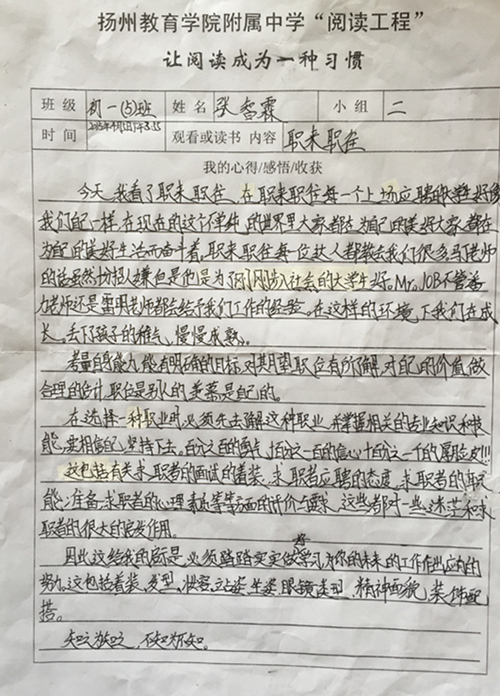 扬州教育学院附属中学“阅读工程”
让阅读成为一种习惯
班级 初一(5)班 姓名 张香霖 小组 二
时间 观看或读书 内容 职来职往
我的心得/感悟/收获
今天,我看了职来职往,在职来职往每一个上场应聘的大学生好像
我们一样,在现在的这个不单纯的世界里大家都在为自己的美好大家都在
为自己的美好生活而奋斗着,职来职往每位达人都教会我们很多马老师
的话虽然招人嫌但是他是为了刚刚步入社会的大学生好。Mr.JOB不管姜
力老师还是雷明老师都会给予我们工作的经验。在这样的环境下我们在成
长。丢下了孩子的稚气,慢慢成熟。
考量自身能力,能有明确的目标,对其期望职位有所了解,对自己的价值做
合理的估计,职位是别人的,美慕是自己的。
在选择一种职业时,必须先去了解这种职业,并掌握相关的专业知识和技
能,要相信自己,坚持下去。百分之百的勇气,百分之一百的信心,十百分之一个的厚脸皮!!!
这包括有关求职者的面试的着装,求职者应聘的态度,求职者的职
能、准备,求职者的心理素质等等方面的评价与要求,这些都对一些迷茫和求
职者的很大的启发作用。
因此,这给我的启示是,必须踏踏实实做好学习,为你的未来的工作作出应有的
努力。这包括着装、发型、妆容、立姿、坐姿、眼镜造型,精神面貌,装饰配
搭。
知之为知之,不知为不知。